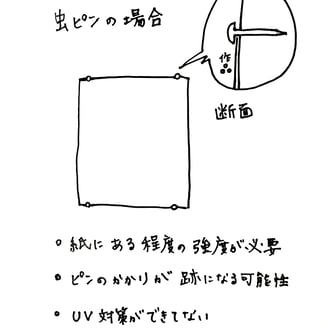 虫ピンの場合
作
断面
○ 紙にある程度の強度が必要
○ ピンのかかりが跡になる可能性
○ UV対策ができてない